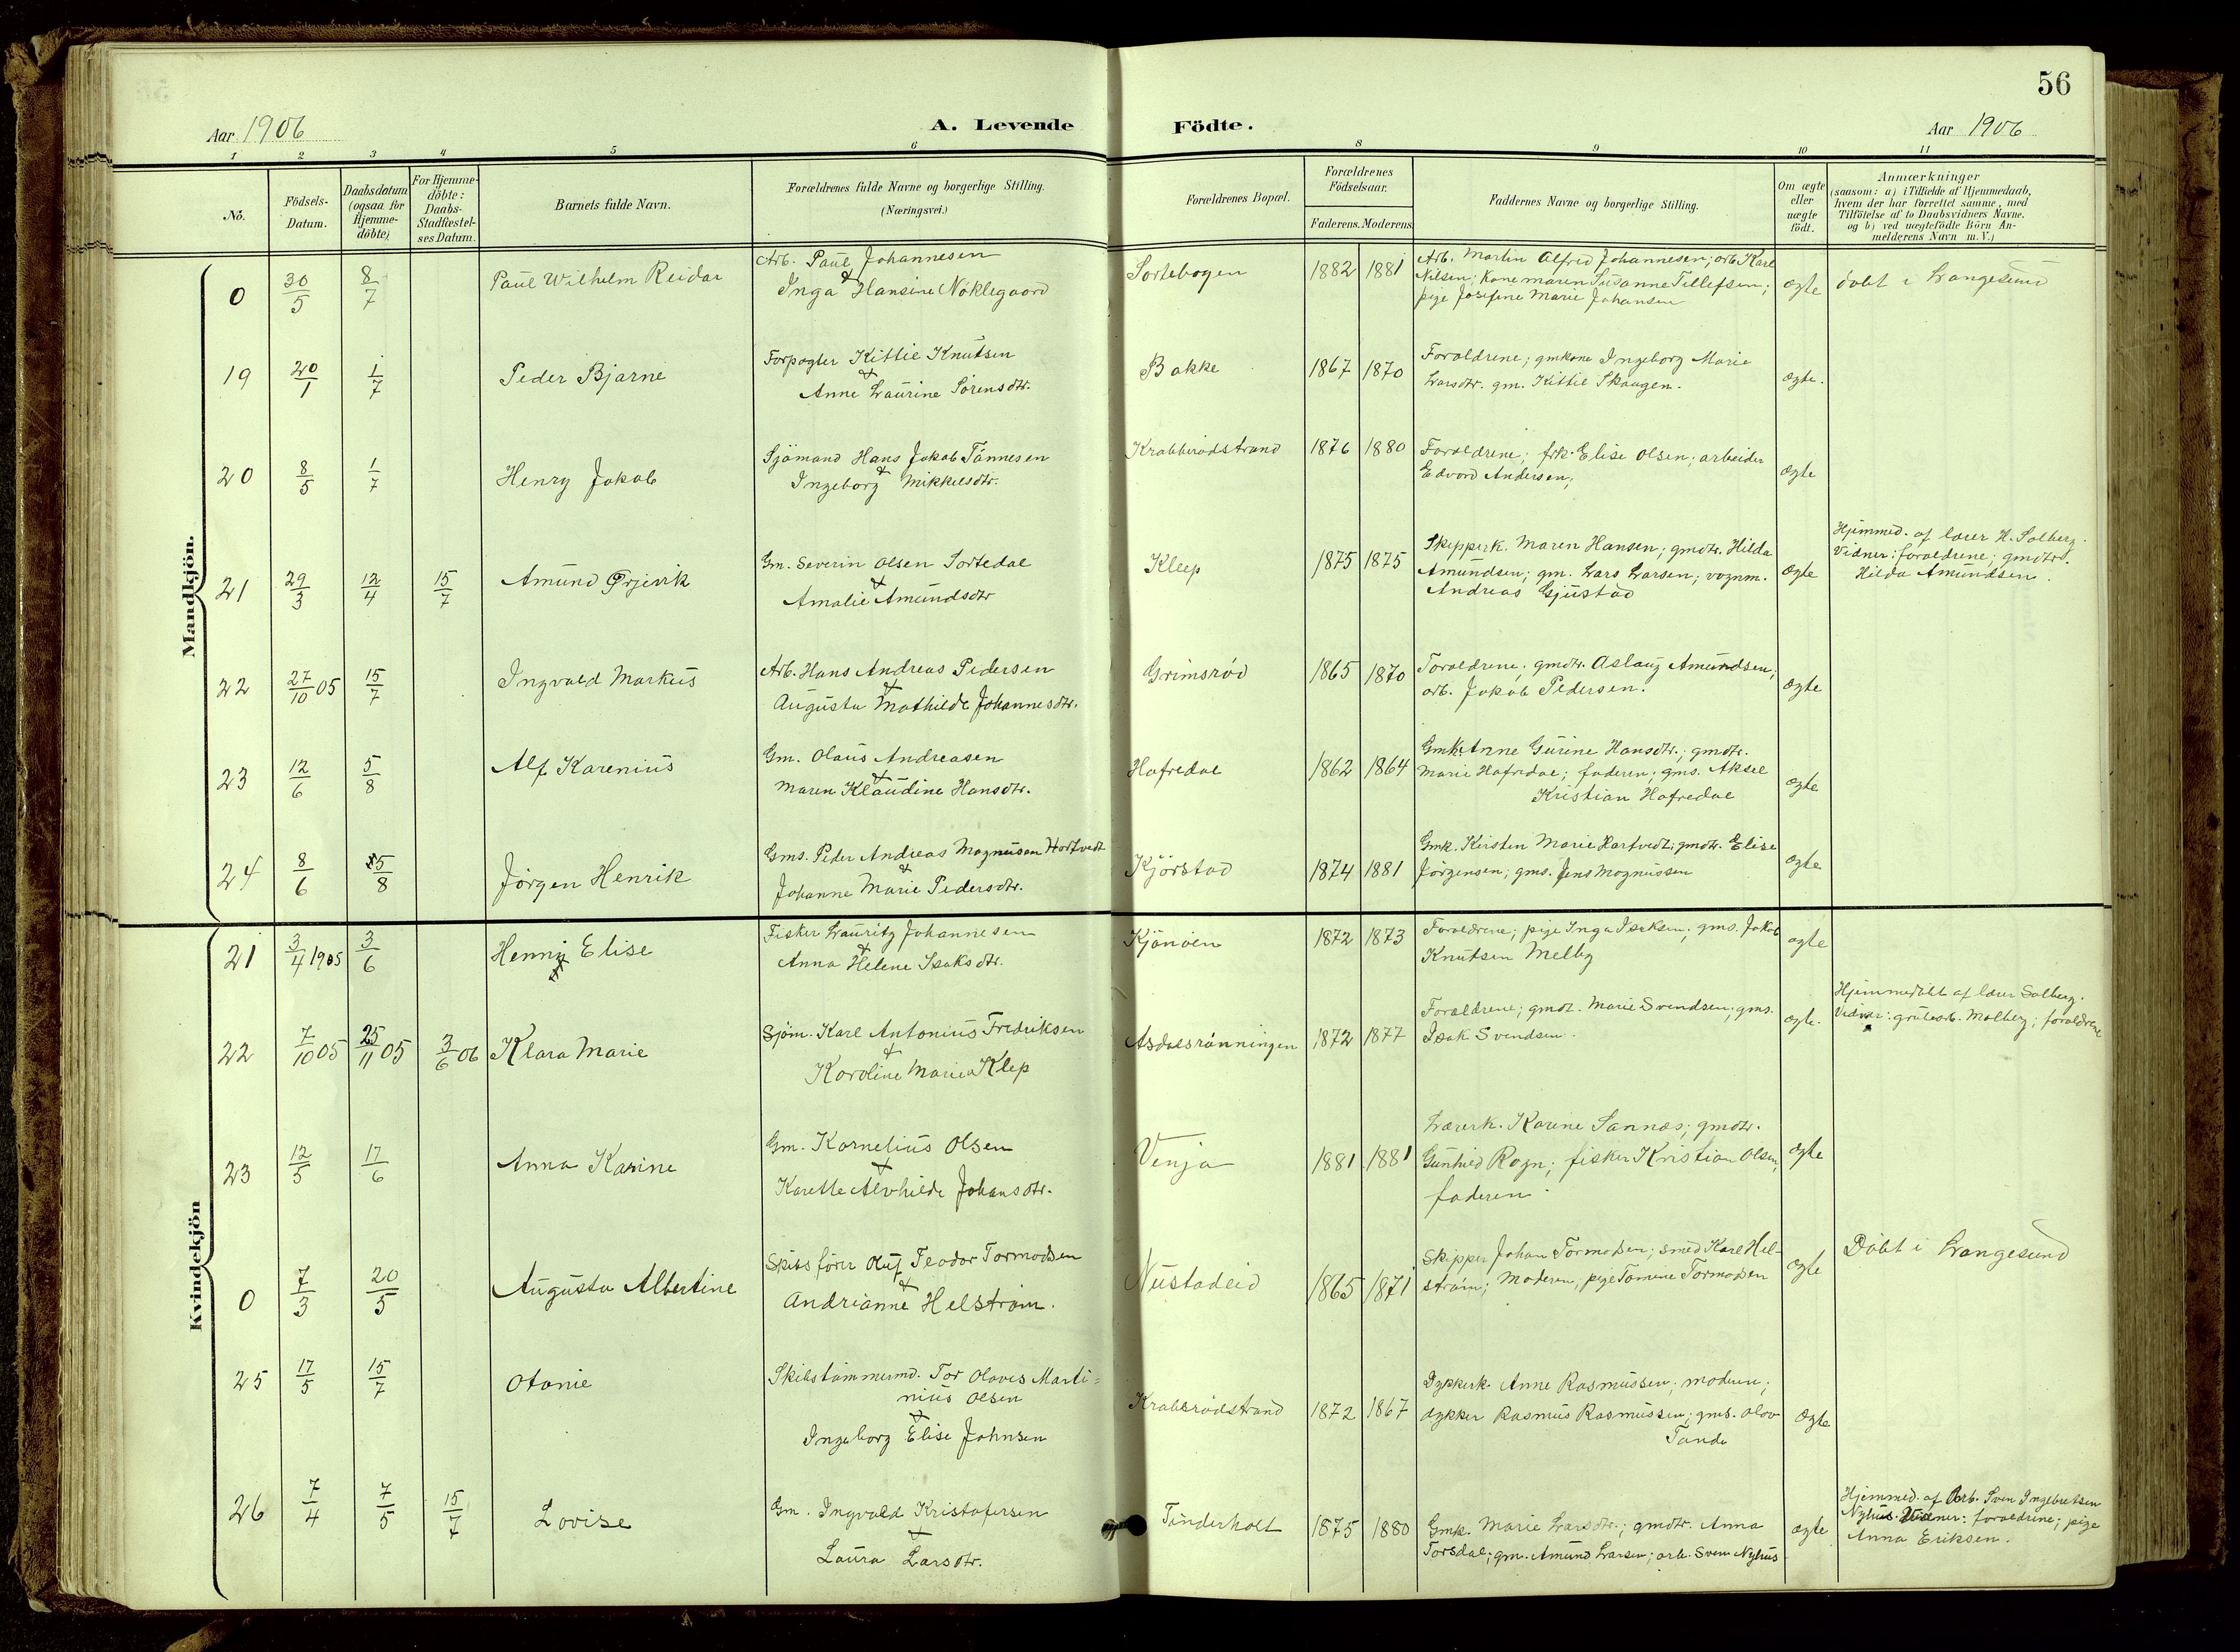 56
Aar 1906
A. Levende Födte.
Aar 1906
1 2 3 4 5 6 8 9 10 11
No.
Födsels-
Datum.
Daabsdatum
(ogsaa for
Hjemme-
döbte)
For Hjemme-
döbte:
Daabs-
Stadfæstel-
ses Datum.
Barnets fulde Navn.
Forældrenes fulde Navne og borgerlige Stilling.
(Næringsvei.)
Forældrenes Bopæl.
Forældrenes
Födselsaar.
Faderens. Moderens.
Faddernes Navne og borgerlige Stilling.
Om ægte
eller
uægte
födt.
Anmærkninger
(saasom: a) i Tilfælde af Hjemmedaab,
hvem der har forrettet samme, med
Tilföielse af to Daabsvidners Navne.
og b) ved uægtefödte Börn An-
melderens Navn m. V.)
Mandkjön.
0 30/5 8/7 Paul Wilhelm Reidar
Arb. Paul Johannesen
&
Inga Hansine Nøklegaard
Sortebogen 1882 1881
Arb. Martin Alfred Johannesen; arb. Karl
Nilsen; Kone Maren Susanne Tillefsen;
pige Josefine Marie Johansen
ægte
döbt i Langesund
19 20/1 1/7 Peder Bjarne
Forpagter Kittil Knutsen
&
Anne Laurine Sörensdtr.
Bakke 1867 1870
Foraldrene; gmkone Ingeborg Marie
Larsdtr. gm. Kittil Skaugen.
ægte.
20 8/5 1/7 Henry Jakob
Sjömand Hans Jakob Tönnesen
&
Ingeborg Mikkelsdtr.
Krabberödstrand 1876 1880
Foraldrene; frk. Elise Olsen; arbeider
Edvard Andersen;
ægte
21 29/3 12/4 15/7 Amund
Gm. Severin Olsen Sortedal
&
Amalie Amundsdtr
Kleep 1875 1875
Skipperk. Maren Hansen; gmdtr. Hilda
Amundsen; gm. Lars Larsen; vognm.
Andreas Gjustad
ægte
Hjemmed. af lærer H. Solberg.
Vidner: foraldrene; gmdtr.
Hilda Amundsen.
22 27/10 05 15/7 Ingvald Markus
Arb. Hans Andreas Pedersen
&
Augusta Mathilde Johannesdtr.
Grimsröd 1865 1870
Foraldrene; gmdtr. Aslaug Amundsen;
arb. Jakob Pedersen.
ægte
23 12/6 5/8 Alf Karenius
Gm. Olaus Andreasen
&
Maren Klaudine Hansdtr.
Hafredal 1862 1864
Gmk. Anne Gurine Hansdtr.; gmdtr.
Marie Hafredal; faderen; gms. Aksel
Kristian Hafredal
ægte
24 8/6 5/8 Jörgen Henrik
Gms. Peder Andreas Magnusen Hartvedt
&
Johanne Marie Pedersdtr.
Kjörstad 1874 1881
Gmk. Kirsten Marie Hartvedt; gmdtr. Elise
Jörgensen; gms. Jens Magnussen
ægte
Kvindekjön
21 3/4 1905 3/6 Henny Elise
Fisker Lauritz Johannesen
&
Anna Helene Isaksdtr.
Kjönöen 1872 1873
Foraldrene; pige Inga Isaksen; gms. Jakob
Knutsen Melby
ægte
22 7/10 05 25/11 05 3/6 06 Klara Marie
Sjöm. Karl Antonius Fredriksen
&
Karoline Marie Klep
Asdalsrönningen 1872 1877
Foraldrene; gmdtr. Marie Svendsen; gms.
Isak Svendsen.
ægte.
Hjemmedöbt af lærer Solberg.
Vidner: grubearb. Molberg; foraldrene
23 12/5 17/6 Anna Karine
Gm. Kornelius Olsen
&
Karette Alvhilde Johansdtr.
Venja 1881 1881
Lærerk. Karine Sannæs; gmdtr.
Gunhild Rogn; fisker Kristian Olsen,
faderen.
ægte
0 7/3 20/5 Augusta Albertine
Skibsförer Oluf Teodor Tormodsen
&
Andrianne Helström.
Nustadeid 1865 1871
Skipper Johan Tormodsen; smed Karl Hel-
ström; Moderen; pige Tomine Tormodsen
ægte
Döbt i Langesund
25 17/5 15/7 Otonie
Skibstömmermd. Tor Olaves Marti=
nius Olsen
&
Ingeborg Elise Johnsen
Krabberödstrand 1872 1867
Dykkerk. Anne Rasmussen; moderen;
dykker Rasmus Rasmussen; gms. Olav
Tande
ægte
26 7/4 7/5 15/7 Lovise
Gm. Ingvald Kristofersen
&
Laura Larsdtr.
Tinderholt 1875 1880
Gmk. Marie Larsdtr.; gmdtr. Anna
Torsdal; gm. Amund Larsen; arb. Sven Nyhus
ægte
Hjemmed. af Arb. Sven Ingebretsen
Nyhus. Vidner: foraldrene; pige
Anna Eriksen.